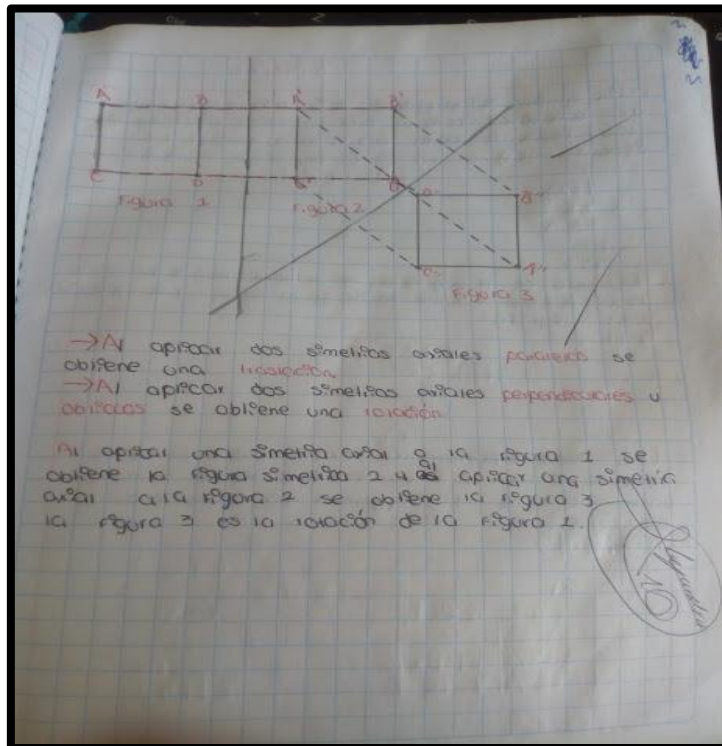 A B A' B'
C D
Figura 1 Figura 2
B''
A''
Figura 3
→Al aplicar dos simetrías axiales paralelas se
obtiene una traslación
→Al aplicar dos simetrías axiales perpendiculares u
oblicuas se obtiene una rotación
Al aplicar una simetría axial a la figura 1 se
obtiene la figura simétrica 2 y al aplicar una simetría
axial a la figura 2 se obtiene la figura 3
la figura 3 es la rotación de la figura 1.
10